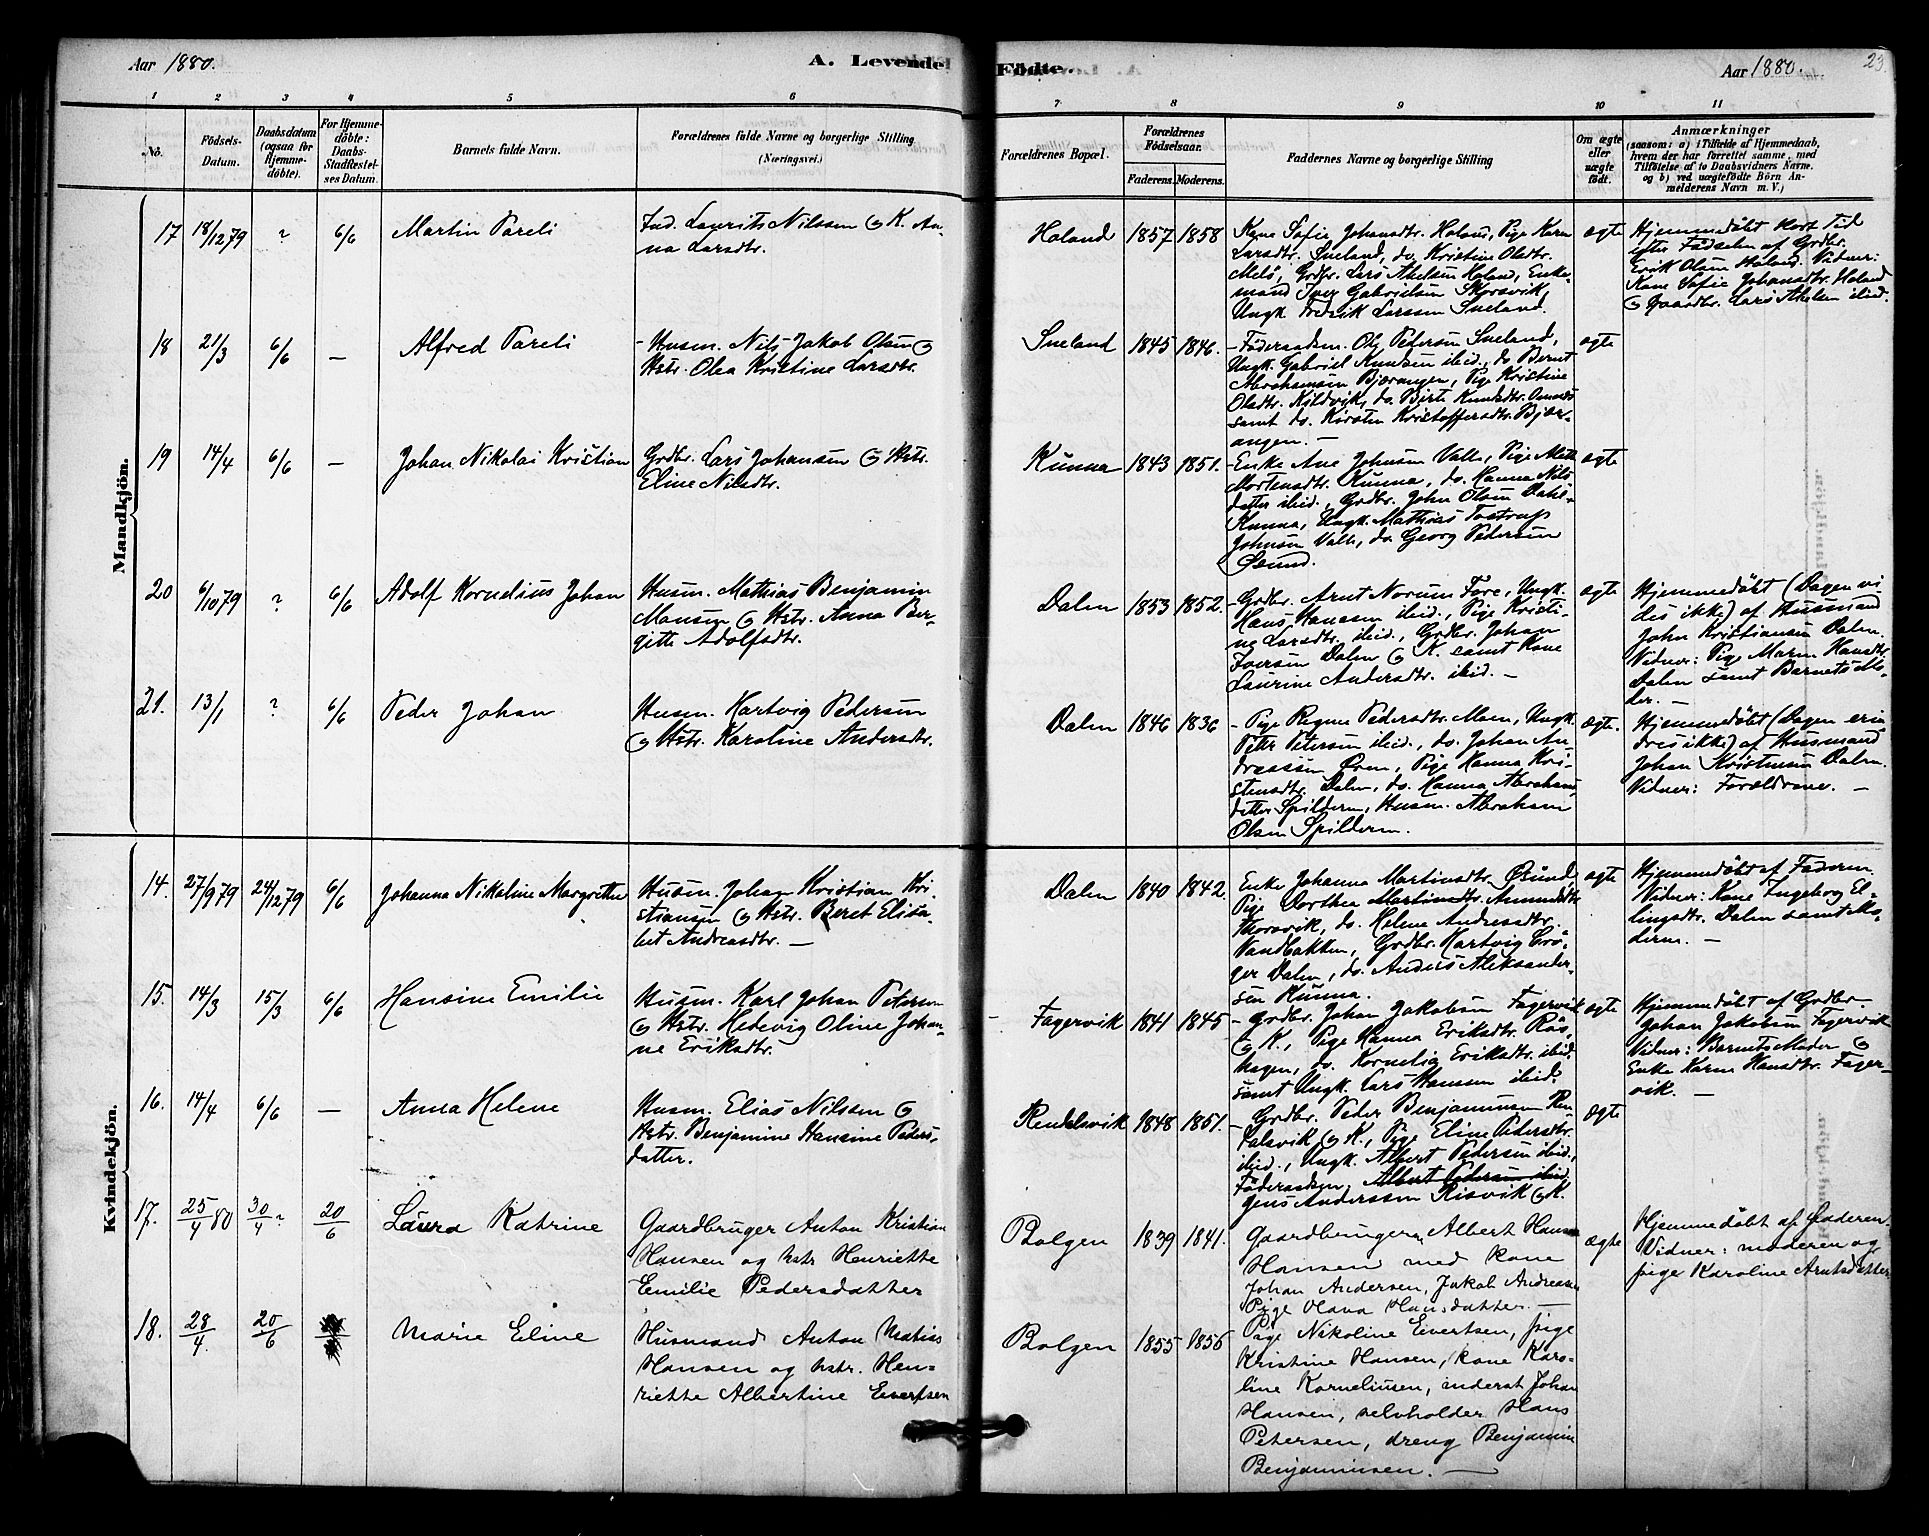 Aar 1880.
A. Levende
Födte.
Aar 1880.
23.
1 2 3 4 5 6 7 8 9 10 11
No.
Födsels-
Datum.
Daabsdatum
(ogsaa for
Hjemme-
döbte).
For Hjemme-
döbte:
Daabs-
Stadfæstel-
ses Datum.
Barnets fulde Navn.
Forældrenes fulde Navne og borgerlige Stilling
(Næringsvei.)
Forældrenes Bopæl.
Forældrenes
Födselsaar.
Faderens. Moderens.
Faddernes Navne og borgerlige Stilling
Om ægte
eller
uægte
födt.
Anmærkninger
(saasom: a) i Tilfælde af Hjemmedaab,
hvem der har forrettet samme, med
Tilföielse af to Daabsvidners Navne.
og b) ved uægtefödte Börn An-
melderens Navn m. V.)
Mandkjön.
17 18/12 79 ? 6/6 Martin Pareli
Ind. Laurits Nilssen & K. An-
na Larsdtr.
Haland 1857 1858
Kone Sofie Johansdtr. Haland, Pige Karn
Larsdtr. Sneland, do. Kristine Olsdtr.
Melö, Grdbr. Lars Abelsen Haland, Enke-
mand Iver Gabrielsen Skarsvik,
Ungk. Fredrik Larssen Sneland.
ægte
Hjemmedöbt kort Tid
efter Födselen af Grdbr.
Erik Olsen Haland. Vidner:
Kone Sofie Johansdtr. Haland
& Gaardbr. Lars Abelsen ibid.
18 21/3 6/6 — Alfred Pareli
Husm. Nils Jakob Olsen &
Hstr. Olea Kristine Larsdtr.
Sneland 1845 1846.
Föderaadsm. Ole Pedersen Sneland,
Ungk. Gabriel Knudsen ibid., do Bernt
Abrahamsen Bjærangen, Pige Kristine
Olsdtr. Kildvik, do. Birte Knudsdtr.
samt do. Kirsten Kristoffersdtr. Bjær-
angen. —
ægte
19 14/4 6/6 — Johan Nikolai Kristian
Grdbr. Lars Johansen & Hstr.
Eline Nilsdtr.
Kunna 1843 1851.
Enke Ane Johnsen Valle, Pige
Mortensdtr. Kunna, do. Hanna Nils-
datter ibid., Grdbr. John Olsen Dahl-
Kunna, Ungk. Mathias Tostrup
Johnsen Valle, do. Georg Pedersen
Ørund.
ægte
20 6/10 79 ? 6/6 Adolf Kornelius Johan
Husm. Mathias Benjamin
Monsen & Hstr. Anna Ber-
gitte Adolfsdtr.
Dalen 1853 1852.
Grdbr. Arnt Norum Fore, Ungk.
Hans Hansen ibid., Pige Kristi-
ne Larsdtr. ibid., Grdbr. Johan
Iversen Dalen & K. samt Kone
Laurine Andersdtr. ibid. —
ægte
Hjemmedöbt (Dagen vi-
des ikke) af Husmand
John Kristiansen Dalen.
Vidner: Pige Maren Hansdtr.
Dalen samt Barnets Mo-
der. —
21. 13/1 ? 6/6 Peder Johan
Husm. Hartvig Pedersen
& Hstr. Karoline Andersdtr.
Dalen 1846 1836
Pige Regine Pedersdtr. Moen, Ungk.
Peter Petersen ibid., do. Johan An-
dreassen Øren, Pige Hanna Kri-
stensdtr. Dalen, do. Hanna Abrahams-
datter Spilderen, Husm. Abraham
Olsen Spilderen.
ægte.
Hjemmedöbt (Dagen erin-
dres ikke) af Husmand
Johan Kristensen Dalen.
Vidner: Forældrene. —
Kvindekjön.
14. 27/9 79 24/12 79 6/6 Johanna Nikoline Margrethe
Husm. Johan Kristian Kri-
stiansen & Hstr. Beret Elisa-
bet Andreasdtr. —
Dalen 1840 1842.
Enke Johanna Martinsdtr. Ørund
Pige Dorthea Martinsdtr. Amundsdtr.
Thorsvik, do. Helene Andreasdtr.
Vandbakken, Grdbr. Hartvig Crö-
ger Dalen, do. Anders Aleksander-
sen Kunna.
ægte
Hjemmedöbt af Faderen.
Vidner: Kone Ingeborg El-
lingsdtr. Dalen samt Mo-
deren. —
15. 14/3 15/3 6/6 Hansine Emilie
Husm. Karl Johan Petersen
& Hstr. Hedevig Oline Johan-
ne Eriksdtr.
Fagervik 1841 1845
Grdbr. Johan Jakobsen Fagervik
& K., Pige Hanna Eriksdtr. Rös-
hagen, do. Kornelia Eriksdtr. ibid.
samt Ungk. Lars Hansen ibid.
ægte
Hjemmedöbt af Grdbr.
Johan Jakobsen Fagervik
Vidner: Barnets Moder &
Enke Karen Hansdtr. Fager-
vik. —
16. 14/4 6/6 — Anna Helene
Husm. Elias Nilssen &
Hstr. Benjamine Hansine Peders-
datter.
Rendalsvik 1848 1851.
Grdbr. Peder Benjaminsen Ren-
dalsvik & K., Pige Eline Pedersdtr.
ibid., Ungk. Albert Pedersen ibid.,
Föderaadsm. Albert Pedersen ibid.
Jens Anderssen Risvik & K.
ægte
17. 25/4 80 30/4 ? 20/6 Laura Katrine
Gaardbruger Anton Kristian
Hansen og hstr Henriette
Emilie Pedersdatter
Bolgen 1839 1841.
Gaardbrugern Albert Hans
Hansen med kone
Johan Andersen, Jakob Andreasen
Pige Hava Hansdatter. —
ægte
Hjemmedöbt af Faderen.
Vidner: moderen og
pige Karoline Arntsdatter
18. 28/4. 20/6 Marie Eline
Husmand Anton Matias
Hansen og hstr. Hen-
riette Albertine Evertsen
Bolgen 1855 1856
Pige Nikoline Eivertsen, pige
Kristine Hansen, kone Karo-
line Korneliusen, inderst Johan
Hansen, selvholder Hans
Petersen, dreng Benjamin
Benjaminsen. —